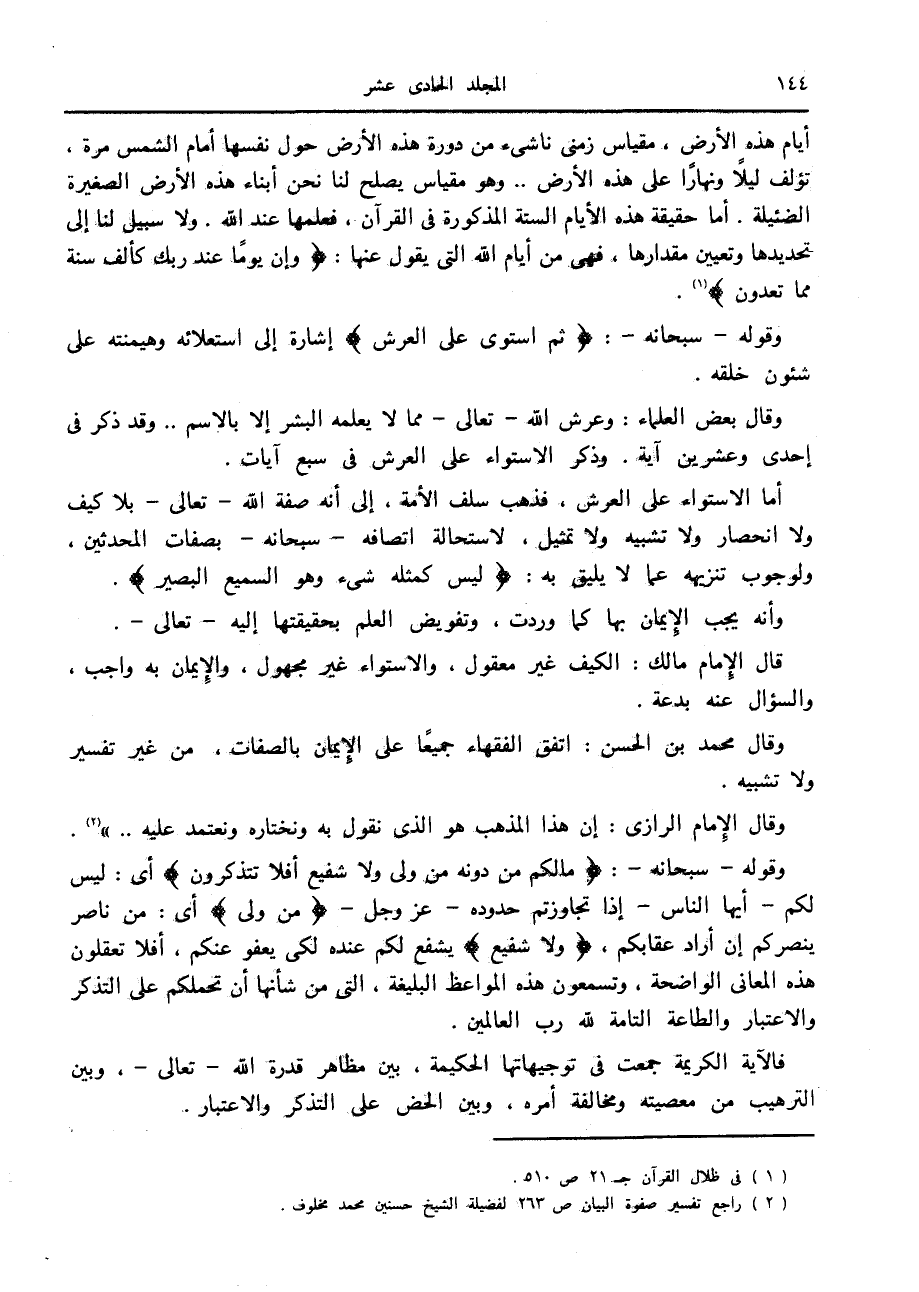 ١٤٤ المجلد الحادى عشر
أيام هذه الأرض ، مقياس زمنى ناشىء من دورة هذه الأرض حول نفسها أمام الشمس مرة ،
تؤلف ليلًا ونهارًا على هذه الأرض .. وهو مقياس يصلح لنا نحن أبناء هذه الأرض الصغيرة
الضئيلة . أما حقيقة هذه الأيام الستة المذكورة فى القرآن ، فعلمها عند الله . ولا سبيل لنا إلى
تحديدها وتعيين مقدارها ، فهى من أيام الله التى يقول عنها : ﴿ وإن يومًا عند ربك كألف سنة
مما تعدون ﴾(١) .
وقوله – سبحانه – : ﴿ ثم استوى على العرش ﴾ إشارة إلى استعلائه وهيمنته على
شئون خلقه .
وقال بعض العلماء : وعرش الله – تعالى – مما لا يعلمه البشر إلا بالاسم .. وقد ذكر فى
إحدى وعشرين آية . وذكر الاستواء على العرش فى سبع آيات .
أما الاستواء على العرش ، فذهب سلف الأمة ، إلى أنه صفة الله – تعالى – بلا كيف
ولا انحصار ولا تشبيه ولا تمثيل ، لاستحالة اتصافه – سبحانه – بصفات المحدثين ،
ولوجوب تنزيهه عما لا يليق به : ﴿ ليس كمثله شىء وهو السميع البصير ﴾ .
وأنه يجب الإيمان بها كما وردت ، وتفويض العلم بحقيقتها إليه – تعالى – .
قال الإمام مالك : الكيف غير معقول ، والاستواء غير مجهول ، والإيمان به واجب ،
والسؤال عنه بدعة .
وقال محمد بن الحسن : اتفق الفقهاء جميعًا على الإيمان بالصفات ، من غير تفسير
ولا تشبيه .
وقال الإمام الرازى : إن هذا المذهب هو الذى نقول به ونختاره ونعتمد عليه .. »(٢) .
وقوله – سبحانه – : ﴿ مالكم من دونه من ولى ولا شفيع أفلا تتذكرون ﴾ أى : ليس
لكم – أيها الناس – إذا تجاوزتم حدوده – عز وجل – ﴿ من ولى ﴾ أى : من ناصر
ينصركم إن أراد عقابكم ، ﴿ ولا شفيع ﴾ يشفع لكم عنده لكى يعفو عنكم ، أفلا تعقلون
هذه المعانى الواضحة ، وتسمعون هذه المواعظ البليغة ، التى من شأنها أن تحملكم على التذكر
والاعتبار والطاعة التامة لله رب العالمين .
فالآية الكريمة جمعت فى توجيهاتها الحكيمة ، بين مظاهر قدرة الله – تعالى – ، وبين
الترهيب من معصيته ومخالفة أمره ، وبين الحض على التذكر والاعتبار .
( ١ ) فى ظلال القرآن جـ ٢١ ص ٥١٠ .
( ٢ ) راجع تفسير صفوة البيان ص ٢٦٣ لفضيلة الشيخ حسنين محمد مخلوف .